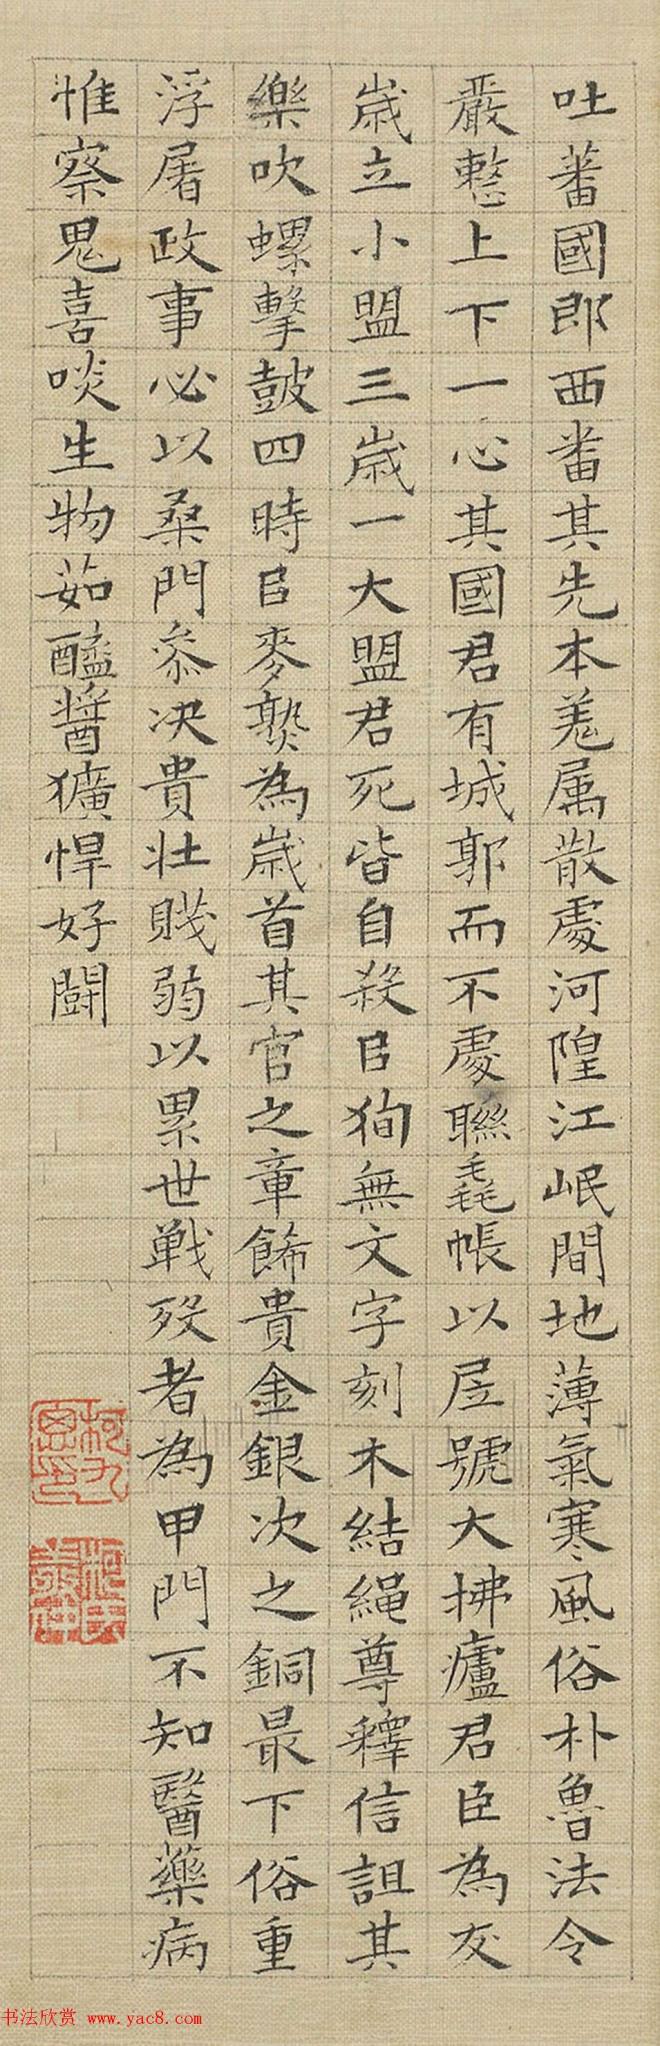 吐蕃國郎西番其先本羗属散處河隍江岷間地薄氣寒風俗朴魯法令
嚴整上下一心其國君有城郭而不處聯毳帳以居號大拂廬君臣為友
歲立小盟三歲一大盟君死皆自殺㠯狥無文字刻木結繩尊釋信詛其
樂吹螺擊鼓四時㠯麥熟為歲首其官之章餙貴金銀次之銅最下俗重
浮屠政事必以桑門叅决貴壯賤弱以累世戰歿者為甲門不知醫藥病
惟察鬼喜啖生物茹醯醬獷悍好鬪
柯九
思印
书法欣赏 www.yac8.com